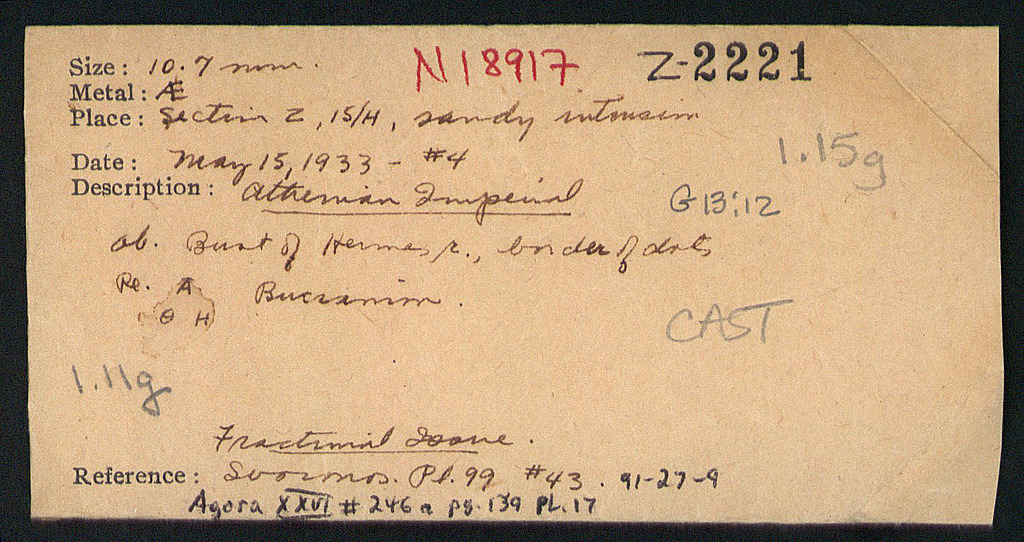 Size : 10.7 mm. N18917 Z-2221
Metal : Æ
Place : Section Z, 15/H, sandy intrusion
1.15g
Date : May 15, 1933 - #4
Description : Athenian Imperial G 13:12
Ob. Bust of Hermes r., border of dots
Re. A Bucranium.
Θ H
CAST
1.11g
Fractional Issue.
Reference : Svoronos. Pl. 99 #43. 91-27-9
Agora XXVI # 246 a pg. 139 PL. 17